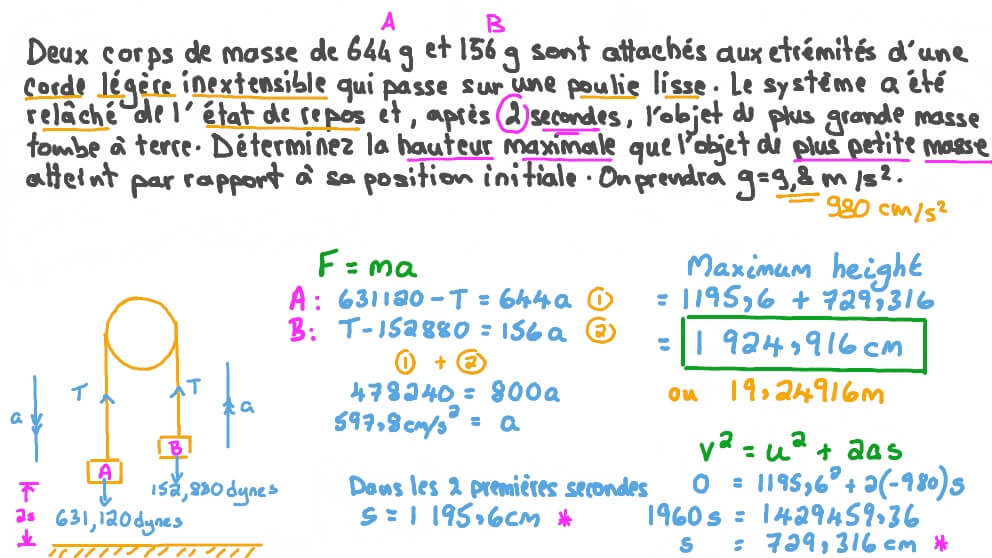 A B
Deux corps de masse de 644 g et 156 g sont attachés aux etrémités d'une
corde légère inextensible qui passe sur une poulie lisse. Le système a été
relâché de l'état de repos et, après 2 secondes, l'objet du plus grande masse
tombe à terre. Déterminez la hauteur maximale que l'objet de plus petite masse
atteint par rapport à sa position initiale. On prendra g=9,8 m/s².
980 cm/s²
F = ma
A: 631120 - T = 644a ①
B: T - 152880 = 156a ②
① + ②
478240 = 800a
597,8 cm/s² = a
Dans les 2 premières secondes
s = 1 195,6 cm *
Maximum height
= 1195,6 + 729,316
= 1 924,916 cm
ou 19,24916 m
v² = u² + 2as
0 = 1195,6² + 2(-980)s
1960s = 1429459,36
s = 729,316 cm *
T T
a a
B
A
152,880 dynes
2s
631,120 dynes